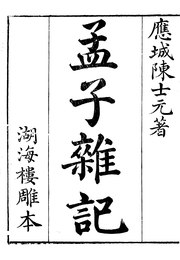 應城陳士元著
孟子雜記
湖海樓雕本